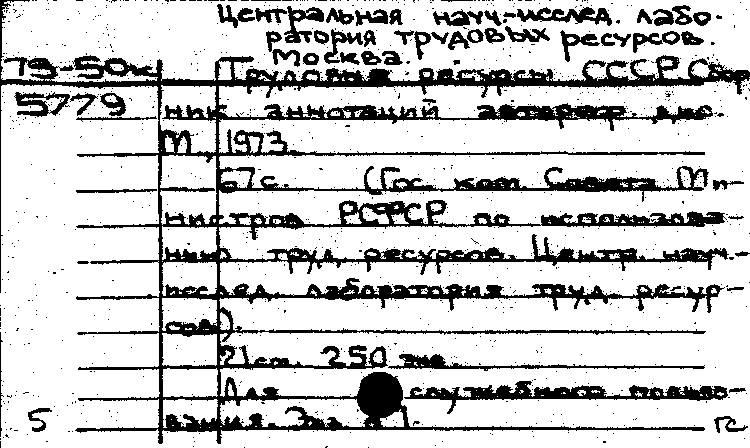 Центральная науч.-исслед. лабо-
ратория трудовых ресурсов.
Москва.
79-50к
Трудовые ресурсы СССР Сбор
5779
ник аннотаций автореф. дис.
М., 1973.
67с. (Гос. ком. Совета Ми-
нистров РСФСР по использова-
нию труд. ресурсов. Центр. науч.-
исслед. лаборатория труд. ресур-
сов).
21см. 250 экз.
Для служебного пользо-
5 вания. Экз. 1.